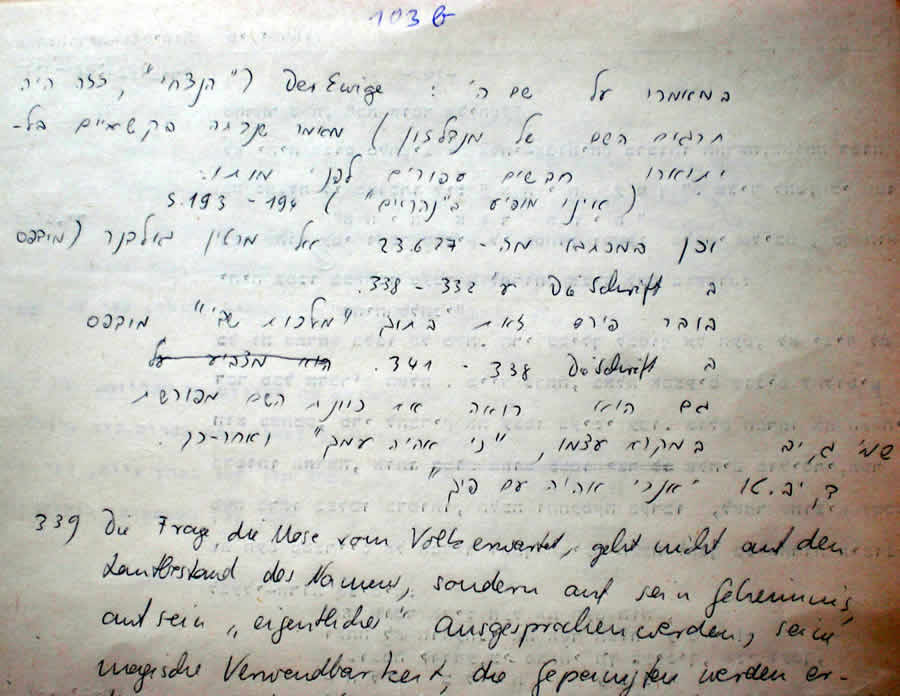 103 b
במאמרו על שם ה' : Der Ewige ("הנצחי", כזה היה
תרגום השם של מנדלזון) מאמר שנכתב בקשיים בל-
יתוארו חדשים ספורים לפני מותו.
(אינו מופיע ב"נהריים") S. 193 - 194
וכן במכתבו מה- 23.6.27 אל מרטין גולדנר (מודפס
ב Die Schrift ע 332 - 338.
בובר פירט זאת בתוך "מלכות שדי" מודפס
ב Die Schrift 338 - 341. הוא מצביע על
גם הוא רואה את כוונת השם מפורשת
שמ' ג, יב במקרא עצמו, "כי אהיה עמך" ואחר-כך
ד, יב. טו "אנכי אהיה עם פיך"
339) Die Frage die Mose vom Volk erwartet, geht nicht auf den
Lautbestand des Namens, sondern auf sein Geheimnis,
auf sein "eigentliches" Ausgesprochenwerden, seine
magische Verwendbarkeit, die Gepeinigten werden er-